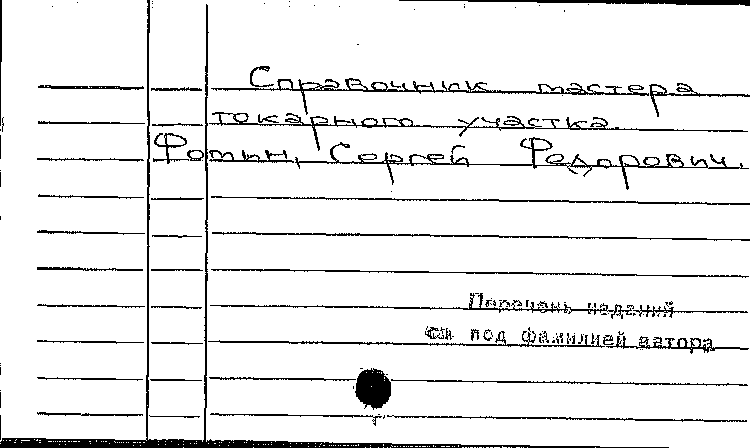 Справочник мастера
токарного участка.
Фомин, Сергей Федорович.
Перечень изданий
см под фамилией автора